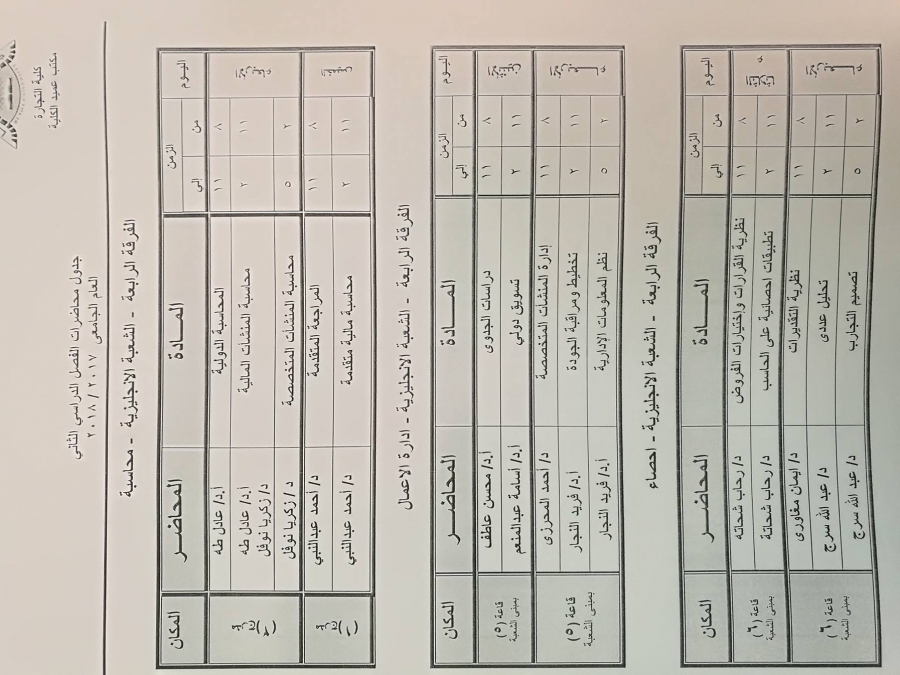 كلية التجارة
مكتب عميد الكلية
جدول محاضرات الفصل الدراسي الثاني
العام الجامعى ٢٠١٧ / ٢٠١٨
الفرقة الرابعة - الشعبة الانجليزية - محاسبة
اليوم الزمن المـــادة المحاضـر المكان
من إلي
٨ ١١ المحاسبة الدولية أ.د/ عادل طه
١١ ٢ محاسبة المنشات المالية أ.د/ عادل طه
د/ زكريا نوفل
٢ ٥ محاسبة المنشأت المتخصصة د / زكريا نوفل
٨ ١١ المراجعة المتقدمة د/ أحمد عبدالنبي
١١ ٢ محاسبة مالية متقدمة د/ أحمد عبدالنبي
الفرقة الرابعة - الشعبة الانجليزية - ادارة الاعمال
اليوم الزمن المـــادة المحاضـر المكان
من إلي
٨ ١١ دراسات الجدوى أ.د/ محسن عاطف قاعة (٥)
١١ ٢ تسويق دولي أ.د/ أسامة عبدالمنعم بمبنى الشعبة
٨ ١١ إدارة المنشأت المتخصصة د/ أحمد المحرزى
١١ ٢ تخطيط ومراقبة الجودة أ.د/ فريد النجار قاعة (٥)
٢ ٥ نظم المعلومات الإدارية أ.د/ فريد النجار بمبنى الشعبة
الفرقة الرابعة - الشعبة الانجليزية - احصاء
اليوم الزمن المـــادة المحاضـر المكان
من إلي
٨ ١١ نظرية القرارات وإختبارات الفروض د/ رحاب شحاته قاعة (٦)
١١ ٢ تطبيقات احصائية على الحاسب د/ رحاب شحاتة بمبنى الشعبة
٨ ١١ نظرية التقديرات د/ ايمان مغاورى
١١ ٢ تحليل عددى د/ عبد الله سرج قاعة (٦)
٢ ٥ تصميم التجارب د/ عبد الله سرج بمبنى الشعبة